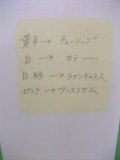 黄色→チューリップ
白→カラー
白緑→ラナンキュラス
ピンク→アンスリウム